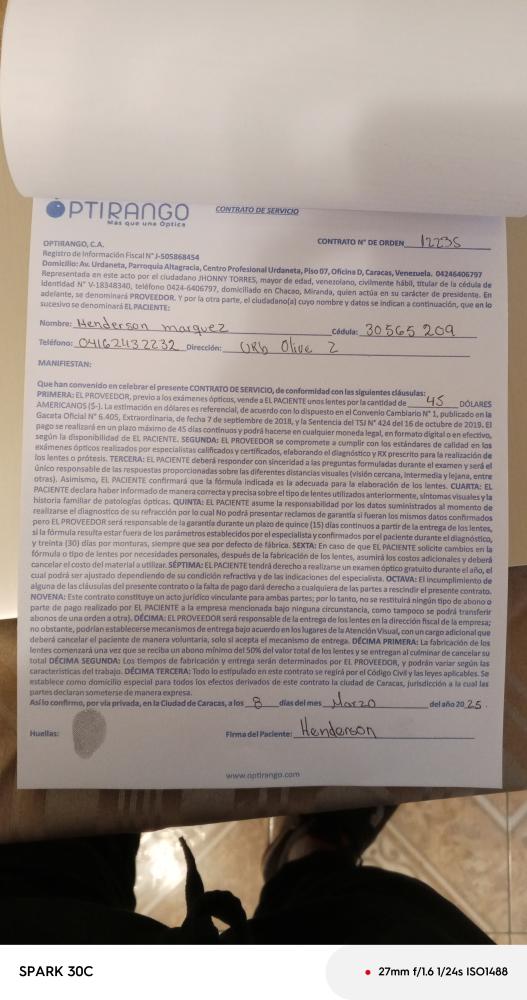 OPTIRANGO
Más que una Óptica
CONTRATO DE SERVICIO
CONTRATO N° DE ORDEN 12235
OPTIRANGO, C.A.
Registro de Información Fiscal N° J-505868454
Domicilio: Av. Urdaneta, Parroquia Altagracia, Centro Profesional Urdaneta, Piso 07, Oficina D, Caracas, Venezuela. 04246406797
Representada en este acto por el ciudadano JHONNY TORRES, mayor de edad, venezolano, civilmente hábil, titular de la cédula de
identidad N° V-18348340, teléfono 0424-6406797, domiciliado en Chacao, Miranda, quien actúa en su carácter de presidente. En
adelante, se denominará PROVEEDOR. Y por la otra parte, el ciudadano(a) cuyo nombre y datos se indican a continuación, que en lo
sucesivo se denominará EL PACIENTE:
Nombre: Henderson marquez Cédula: 30565 209
Teléfono: 04162432232 Dirección: URb Olive 2
MANIFIESTAN:
Que han convenido en celebrar el presente CONTRATO DE SERVICIO, de conformidad con las siguientes cláusulas:
PRIMERA: EL PROVEEDOR, previo a los exámenes ópticos, vende a EL PACIENTE unos lentes por la cantidad de 45 DÓLARES
AMERICANOS ($-). La estimación en dólares es referencial, de acuerdo con lo dispuesto en el Convenio Cambiario N° 1, publicado en la
Gaceta Oficial N° 6.405, Extraordinaria, de fecha 7 de septiembre de 2018, y la Sentencia del TSJ N° 424 del 16 de octubre de 2019. El
pago se realizará en un plazo máximo de 45 días continuos y podrá hacerse en cualquier moneda legal, en formato digital o en efectivo,
según la disponibilidad de EL PACIENTE. SEGUNDA: EL PROVEEDOR se compromete a cumplir con los estándares de calidad en los
exámenes ópticos realizados por especialistas calificados y certificados, elaborando el diagnóstico y RX prescrito para la realización de
los lentes o prótesis. TERCERA: EL PACIENTE deberá responder con sinceridad a las preguntas formuladas durante el examen y será el
único responsable de las respuestas proporcionadas sobre las diferentes distancias visuales (visión cercana, intermedia y lejana, entre
otras). Asimismo, EL PACIENTE confirmará que la fórmula indicada es la adecuada para la elaboración de los lentes. CUARTA: EL
PACIENTE declara haber informado de manera correcta y precisa sobre el tipo de lentes utilizados anteriormente, síntomas visuales y la
historia familiar de patologías ópticas. QUINTA: EL PACIENTE asume la responsabilidad por los datos suministrados al momento de
realizarse el diagnostico de su refracción por lo cual No podrá presentar reclamos de garantía si fueran los mismos datos confirmados
pero EL PROVEEDOR será responsable de la garantía durante un plazo de quince (15) días continuos a partir de la entrega de los lentes,
si la fórmula resulta estar fuera de los parámetros establecidos por el especialista y confirmados por el paciente durante el diagnóstico,
y treinta (30) días por monturas, siempre que sea por defecto de fábrica. SEXTA: En caso de que EL PACIENTE solicite cambios en la
fórmula o tipo de lentes por necesidades personales, después de la fabricación de los lentes, asumirá los costos adicionales y deberá
cancelar el costo del material a utilizar. SÉPTIMA: EL PACIENTE tendrá derecho a realizarse un examen óptico gratuito durante el año, el
cual podrá ser ajustado dependiendo de su condición refractiva y de las indicaciones del especialista. OCTAVA: El incumplimiento de
alguna de las cláusulas del presente contrato o la falta de pago dará derecho a cualquiera de las partes a rescindir el presente contrato.
NOVENA: Este contrato constituye un acto jurídico vinculante para ambas partes; por lo tanto, no se restituirá ningún tipo de abono o
parte de pago realizado por EL PACIENTE a la empresa mencionada bajo ninguna circunstancia, como tampoco se podrá transferir
abonos de una orden a otra). DÉCIMA: EL PROVEEDOR será responsable de la entrega de los lentes en la dirección fiscal de la empresa;
no obstante, podrían establecerse mecanismos de entrega bajo acuerdo en los lugares de la Atención Visual, con un cargo adicional que
deberá cancelar el paciente de manera voluntaria, solo si acepta el mecanismo de entrega. DÉCIMA PRIMERA: La fabricación de los
lentes comenzará una vez que se reciba un abono mínimo del 50% del valor total de los lentes y se entregan al culminar de cancelar su
total DÉCIMA SEGUNDA: Los tiempos de fabricación y entrega serán determinados por EL PROVEEDOR, y podrán variar según las
características del trabajo. DÉCIMA TERCERA: Todo lo estipulado en este contrato se regirá por el Código Civil y las leyes aplicables. Se
establece como domicilio especial para todos los efectos derivados de este contrato la ciudad de Caracas, jurisdicción a la cual las
partes declaran someterse de manera expresa.
Así lo confirmo, por vía privada, en la Ciudad de Caracas, a los 8 días del mes Marzo del año 20 25.
Huellas:
Firma del Paciente: Henderson
www.optirango.com
SPARK 30C
27mm f/1.6 1/24s ISO1488